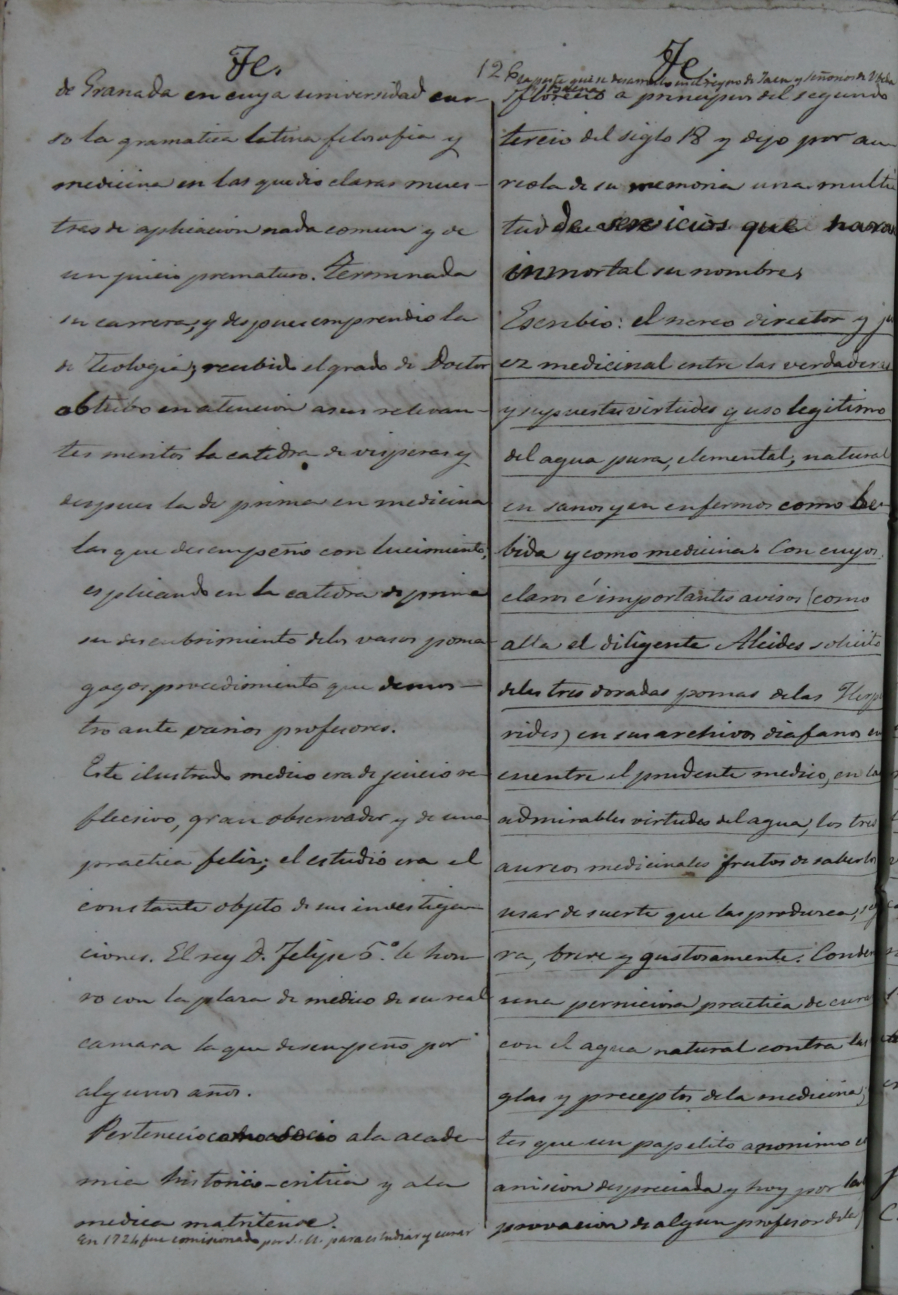 Fe.
de Granada en cuya universidad cur-
so la gramatica latina filosofia y
medicina en las que dio claras mues-
tras de aplicacion nada comun y de
un juicio prematuro. Terminada
su carrera, y despues emprendio la
de Teologia; recibido el grado de Doctor
obtubo en atencion a sus relevan-
tes meritos la catedra de visperas y
despues la de prima en medicina
las que desempeño con lucimiento,
esplicando en la catedra de prima
su descubrimiento delos vasos poma
gogos, procedimiento que demos-
tro ante varios profesores.
Este ilustrado medico era de juicio re-
flecsivo, gran observador y de una
practica feliz; el estudio era el
constante objeto de sus investiga-
ciones. El rey D. Felipe 5.º le hon-
ro con la plaza de medico de su real
camara la que desempeño por
algunos años.
Pertenecio como socio a la acade-
mia historico-critica y a la
medica matritense.
En 1724 fue comisionado por S. M. para estudiar y curar
126
Fe.
la peste que se desarrollo en el reyno de Jaen y señorios de Ubeda
y Baena
florecio a principios del segundo
tercio del siglo 18 y dejo por au
reola de su memoria una multi
tud de servicios que haran
inmortal su nombre,
Escribio: el nereo director y ju
ez medicinal entre las verdaderas
y supuestas virtudes y uso legitimo
del agua pura, elemental, natural
en sanos y en enfermos como be-
bida y como medicina. Con cuyos
claros é importantes avisos (como
alla el diligente Alcides solicito
delas tres doradas pomas delas Hespe
rides) en sus archivos diafanos en
cuentre el prudente medico, en las
admirables virtudes del agua, los tres
aureos medicinales frutos de saberlos
usar de suerte que las produzca, segu
ra, breve y gustosamente. Conden
una perniciosa practica de curar
con el agua natural contra las
glas y preceptos de la medicina,
tes que un papelito anonimo
amision despreciada y hoy por la
provacion de algun profesor dela